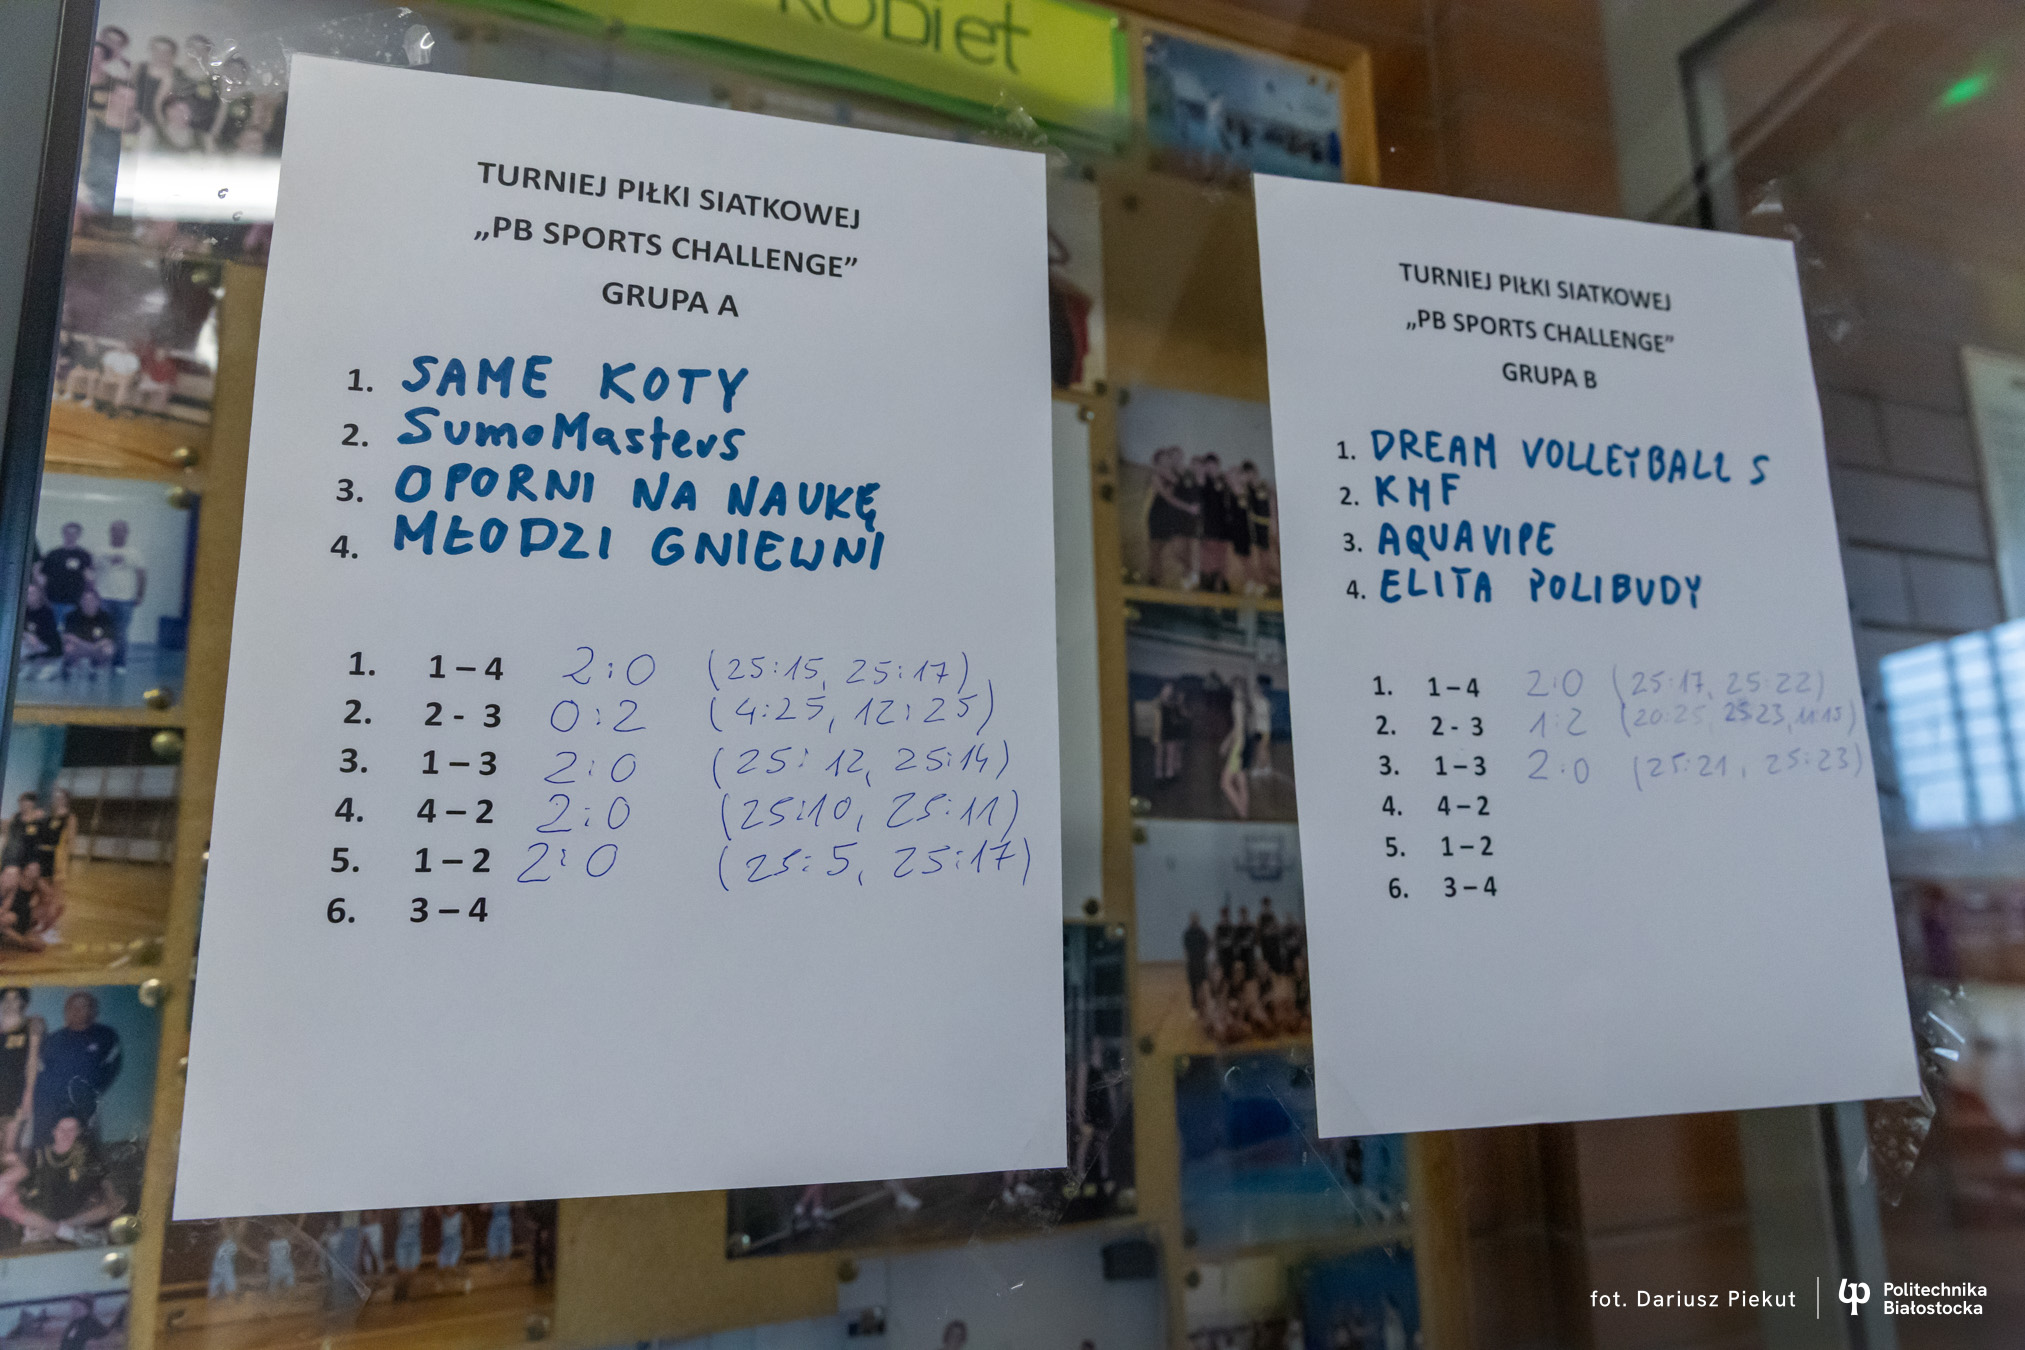 Kobiet
TURNIEJ PIŁKI SIATKOWEJ
„PB SPORTS CHALLENGE”
GRUPA A
1. SAME KOTY
2. SumoMasters
3. OPORNI NA NAUKĘ
4. MŁODZI GNIEWNI
1. 1 – 4 2:0 (25:15, 25:17)
2. 2 - 3 0:2 (4:25, 12:25)
3. 1 – 3 2:0 (25:12, 25:14)
4. 4 – 2 2:0 (25:10, 25:11)
5. 1 – 2 2:0 (25:5, 25:17)
6. 3 – 4
TURNIEJ PIŁKI SIATKOWEJ
„PB SPORTS CHALLENGE”
GRUPA B
1. DREAM VOLLEYBALL S
2. KMF
3. AQUAVIPE
4. ELITA POLIBUDY
1. 1 – 4 2:0 (25:17, 25:22)
2. 2 - 3 1:2 (20:25, 25:23, 11:15)
3. 1 – 3 2:0 (25:21, 25:23)
4. 4 – 2
5. 1 – 2
6. 3 – 4
fot. Dariusz Piekut
Politechnika
Białostocka